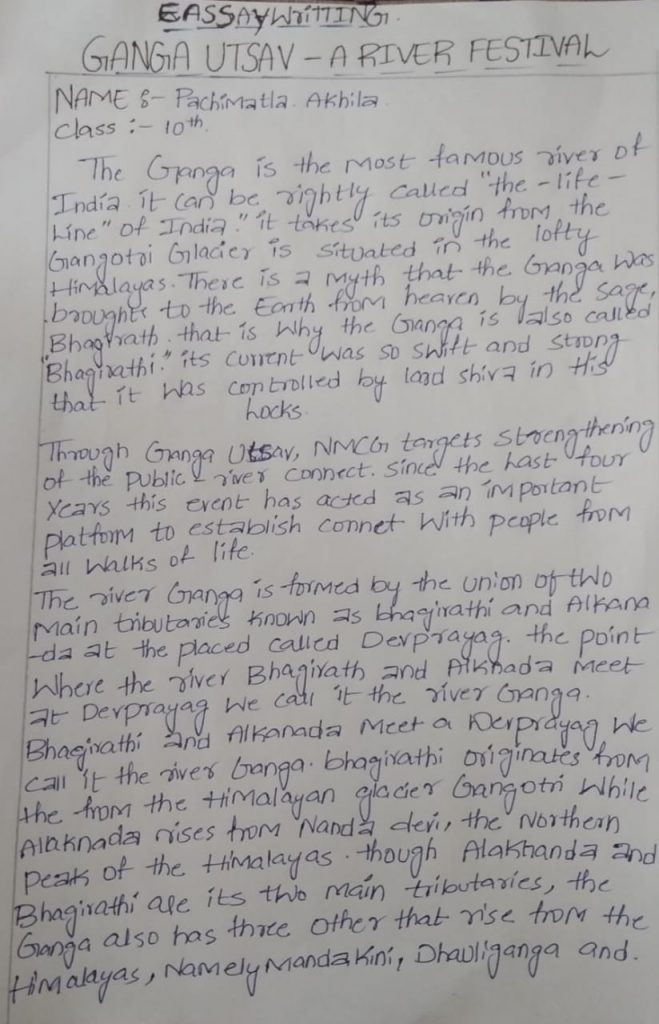 EASSAY WRITTING.
GANGA UTSAV - A RIVER FESTIVAL
NAME :- Pachimatla. Akhila.
Class :- 10th.
The Ganga is the most famous river of
India. it can be rightly called "the - life -
Line" of India." it takes its origin from the
Gangotri Glacier is situated in the lofty
Himalayas. There is a myth that the Ganga was
broughts to the Earth from heaven by the sage,
Bhagirath. that is why the Ganga is also called
"Bhagirathi." its current was so swift and strong
that it was controlled by load shiva in His
Locks.
Through Ganga Utsav, NMCG targets strengthening
of the public - river connect. Since the Last four
Years this event has acted as an important
platform to establish connet with people from
all walks of life.
The river Ganga is formed by the union of two
Main tributaries known as bhagirathi and Alkana
-da at the placed called Devprayag. the point
Where the river Bhagirath and Alknada Meet
at Devprayag we call it the river Ganga.
Bhagirathi and Alkanada Meet a Devprayag we
call it the river Ganga. bhagirathi originates from
the from the Himalayan glacier Gangotri While
Alaknada rises from Nanda devi, the Northern
Peak of the Himalayas. though Alakhanda and
Bhagirathi are its two main tributaries, the
Ganga also has three other that rise from the
Himalayas, Namely Mandakini, Dhauliganga and.